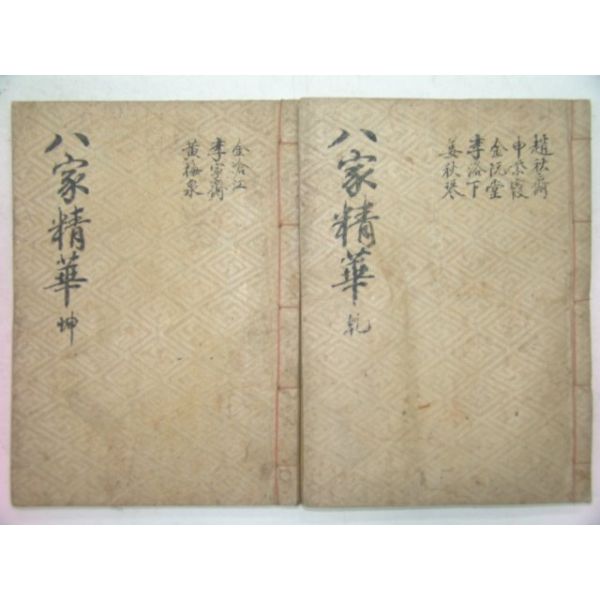 趙秋齋
申紫霞
金阮堂
李洛下
姜秋琴
八家精華 乾
金滄江
李寧齋
黃梅泉
八家精華 坤